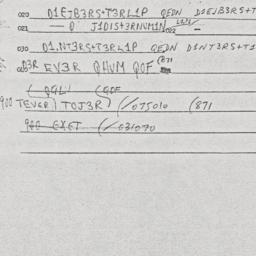 020 D1EJB3RS+T3RL1P QEDN D1EJB3RS+T
021 — D J1DIS+3RNUM1N 022 —
030 D1.NT3RS+T3RL1P QEDN D1NT3RS+T1
D3R EV3R QHUM QOF (871
( QGL) (GOF
900 TEVGR) TOJ3R) (/075010 (871
900 EXGT (/031070